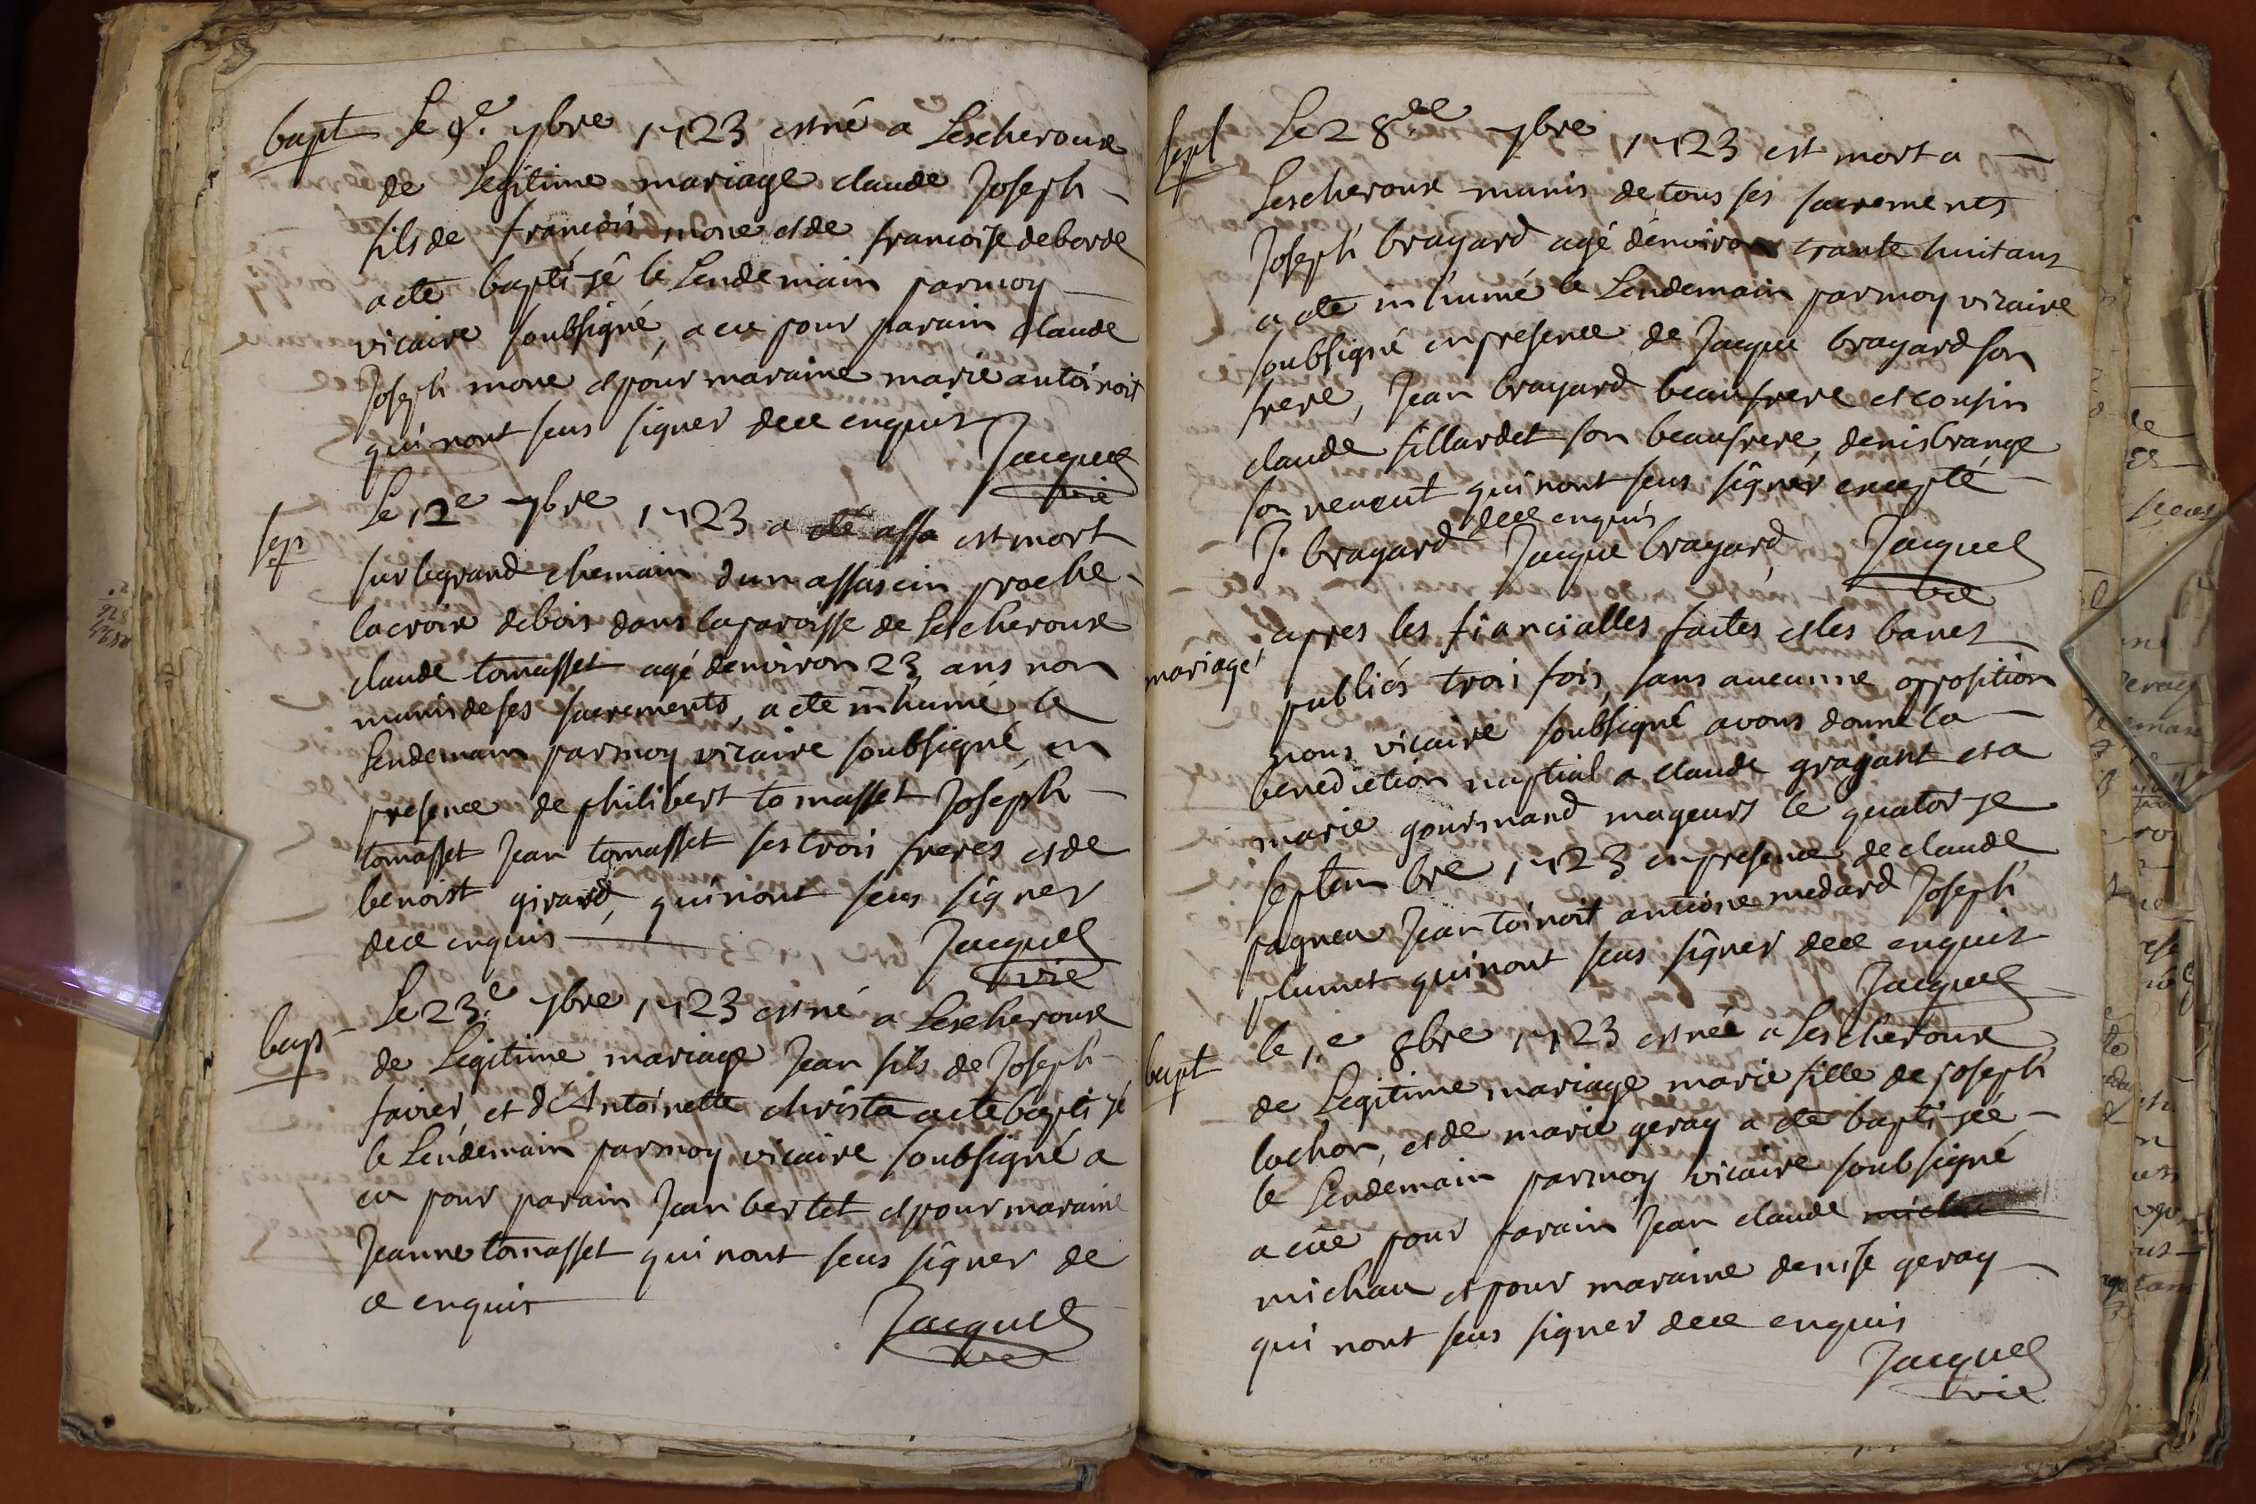 bapt Le 9e. 7bre 1723 est né a Lescheroux
de Legitime mariage claude Joseph
fils de françois mone et de francoise deborde
a eté baptisé le Lendemain par moy
vicaire soubsigné, a eu pour parain claude
Joseph mone et pour maraine marie antoinoit
qui nont seus signer de ce enquis
Jacquet
vic
sep Le 12e 7bre 1723 a eté assa est mort
sur le grand chemain dun assascin proche
la croix de bois dans la paroisse de Lescheroux
claude tomasset agé denviron 23 ans non
munis de ses sacrements, a eté inhumé le
Lendemain par moy vicaire soubsigné, en
presence de philibert tomasset Joseph
tomasset Jean tomasset ses trois freres et de
benoist girard, qui nont seus signer
de ce enquis
Jacquet
vic
bap Le 23.e 7bre 1723 est né a Lescheroux
de Legitime mariage Jean fils de Joseph
favier, et d'Antoinette christa a eté baptisé
le Lendemain par moy vicaire soubsigné a
eu pour parain Jean bertet et pour maraine
Jeanne tomasset qui nont seus signer de
ce enquis
Jacquet
vic
sept Le 28de 7bre 1723 est mort a
Lescheroux munis de tous ses sacrements
Joseph brayard agé denviron trante huit ans
a eté inhumé le Lendemain par moy vicaire
soubsigné en presence de Jacque brayard son
frere, Jean brayard beaufrere et cousin
claude fillardet son beaufrere, denis brange
son neveut qui nont seus signer excepté
de ce enquis
J. brayard Jacque brayard Jacquet
vic
mariage apres les fiancialles faites et les bancs
publiés trois fois, sans aucunne opposition
nous vicaire soubsigné avons donné la
benediction nuptial a claude grayant et a
marie gourmand mageurs le quatorze
septembre 1723 en presence de claude
pagneu Jean toinoit antoine medard Joseph
plumet qui nont seus signer de ce enquis
Jacquet
bapt le 1.e 8bre 1723 est née a Lescheroux
de Legitime mariage marie fille de joseph
bochon, et de marie geray a eté baptisée
le Lendemain par moy vicaire soubsigné
a eüe pour parain Jean claude micha
michau et pour maraine denise geray
qui nont seus signer de ce enquis
Jacquet
vic